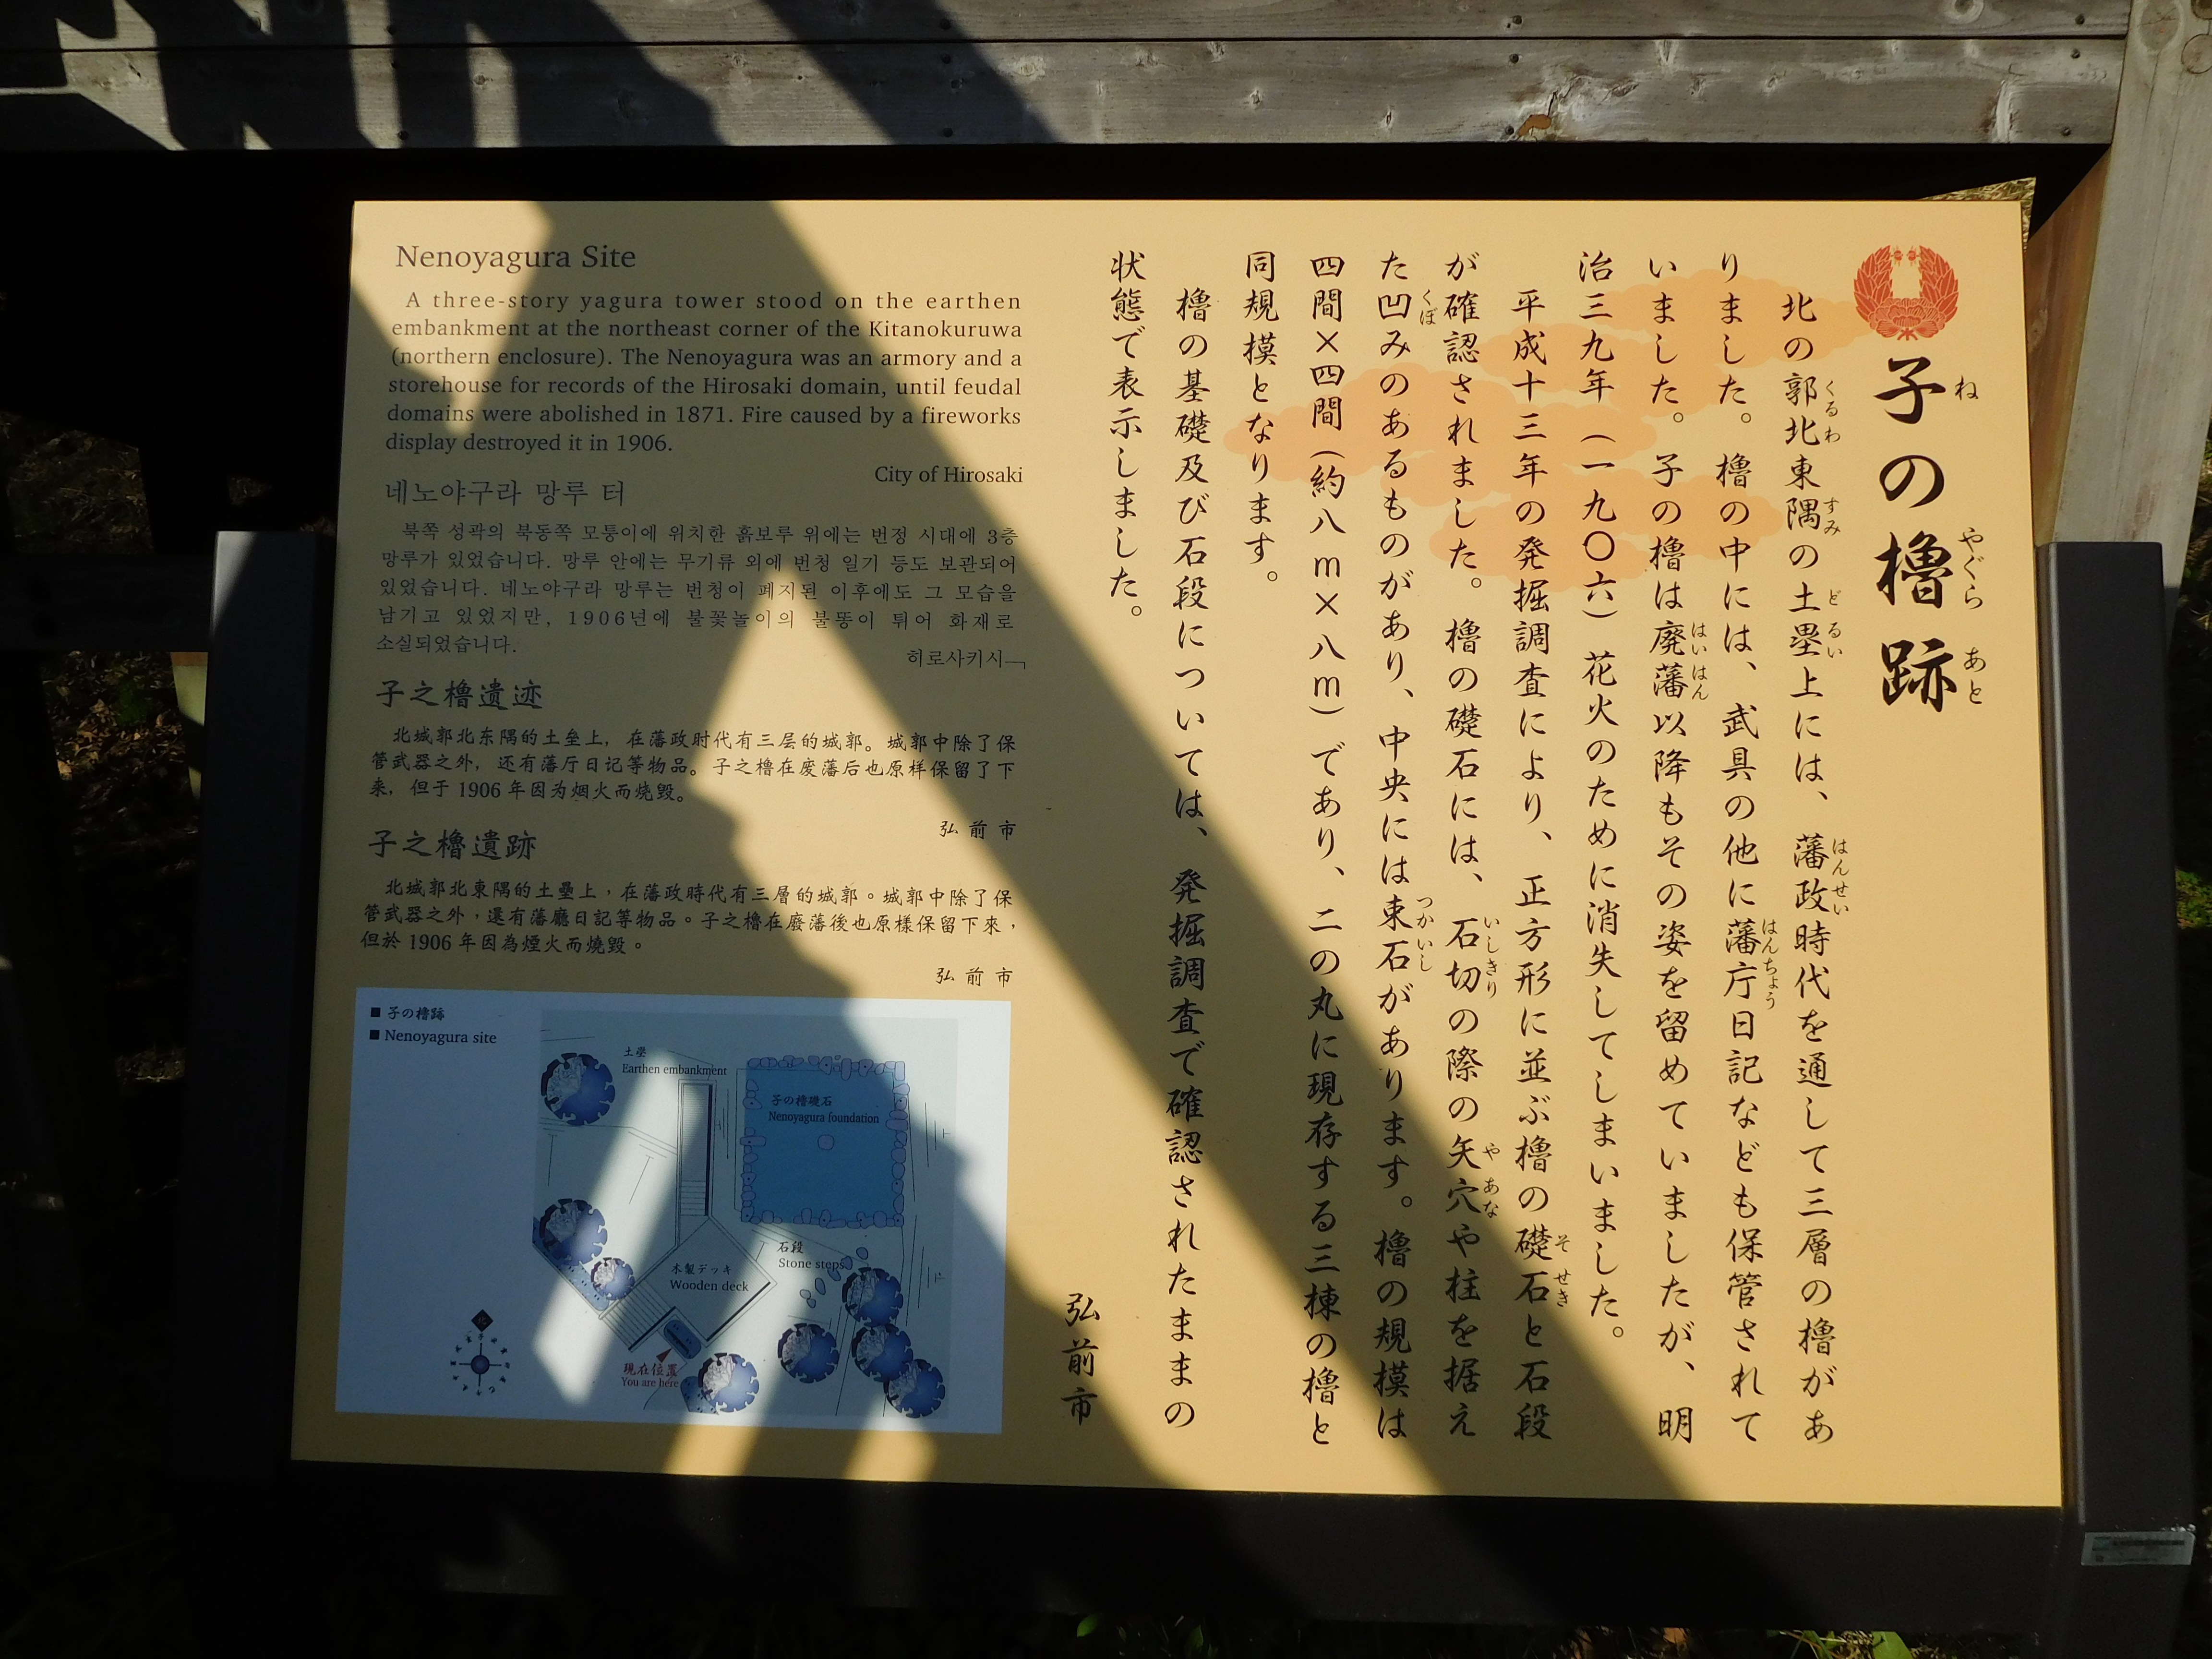 子の櫓跡
ね
やぐら
あと
北の郭北東隅の土塁上には、藩政時代を通して三層の櫓があ
くるわ
すみ
どるい
はんせい
りました。櫓の中には、武具の他に藩庁日記なども保管されて
はんちょう
いました。子の櫓は廃藩以降もその姿を留めていましたが、明
はいはん
治三九年（一九〇六）花火のために消失してしまいました。
平成十三年の発掘調査により、正方形に並ぶ櫓の礎石と石段
そせき
が確認されました。櫓の礎石には、石切の際の矢穴や柱を据え
いしきり
やあな
た凹みのあるものがあり、中央には束石があります。櫓の規模は
くぼ
つかいし
四間×四間（約八m×八m）であり、二の丸に現存する三棟の櫓と
同規模となります。
櫓の基礎及び石段については、発掘調査で確認されたままの
状態で表示しました。
弘前市
Nenoyagura Site
A three-story yagura tower stood on the earthen
embankment at the northeast corner of the Kitanokuruwa
(northern enclosure). The Nenoyagura was an armory and a
storehouse for records of the Hirosaki domain, until feudal
domains were abolished in 1871. Fire caused by a fireworks
display destroyed it in 1906.
City of Hirosaki
네노야구라 망루 터
북쪽 성곽의 북동쪽 모퉁이에 위치한 흙보루 위에는 번정 시대에 3층
망루가 있었습니다. 망루 안에는 무기류 외에 번청 일기 등도 보관되어
있었습니다. 네노야구라 망루는 번청이 폐지된 이후에도 그 모습을
남기고 있었지만, 1906년에 불꽃놀이의 불똥이 튀어 화재로
소실되었습니다.
히로사키시
子之櫓遗迹
北城郭北东隅的土垒上，在藩政时代有三层的城郭。城郭中除了保
管武器之外，还有藩厅日记等物品。子之櫓在废藩后也原样保留了下
来，但于 1906 年因为烟火而烧毁。
弘前市
子之櫓遺跡
北城郭北東隅的土壘上，在藩政時代有三層的城郭。城郭中除了保
管武器之外，還有藩廳日記等物品。子之櫓在廢藩後也原樣保留下來，
但於 1906 年因為煙火而燒毀。
弘前市
■ 子の櫓跡
■ Nenoyagura site
土塁
Earthen embankment
子の櫓礎石
Nenoyagura foundation
石段
Stone steps
木製デッキ
Wooden deck
現在位置
You are here
北